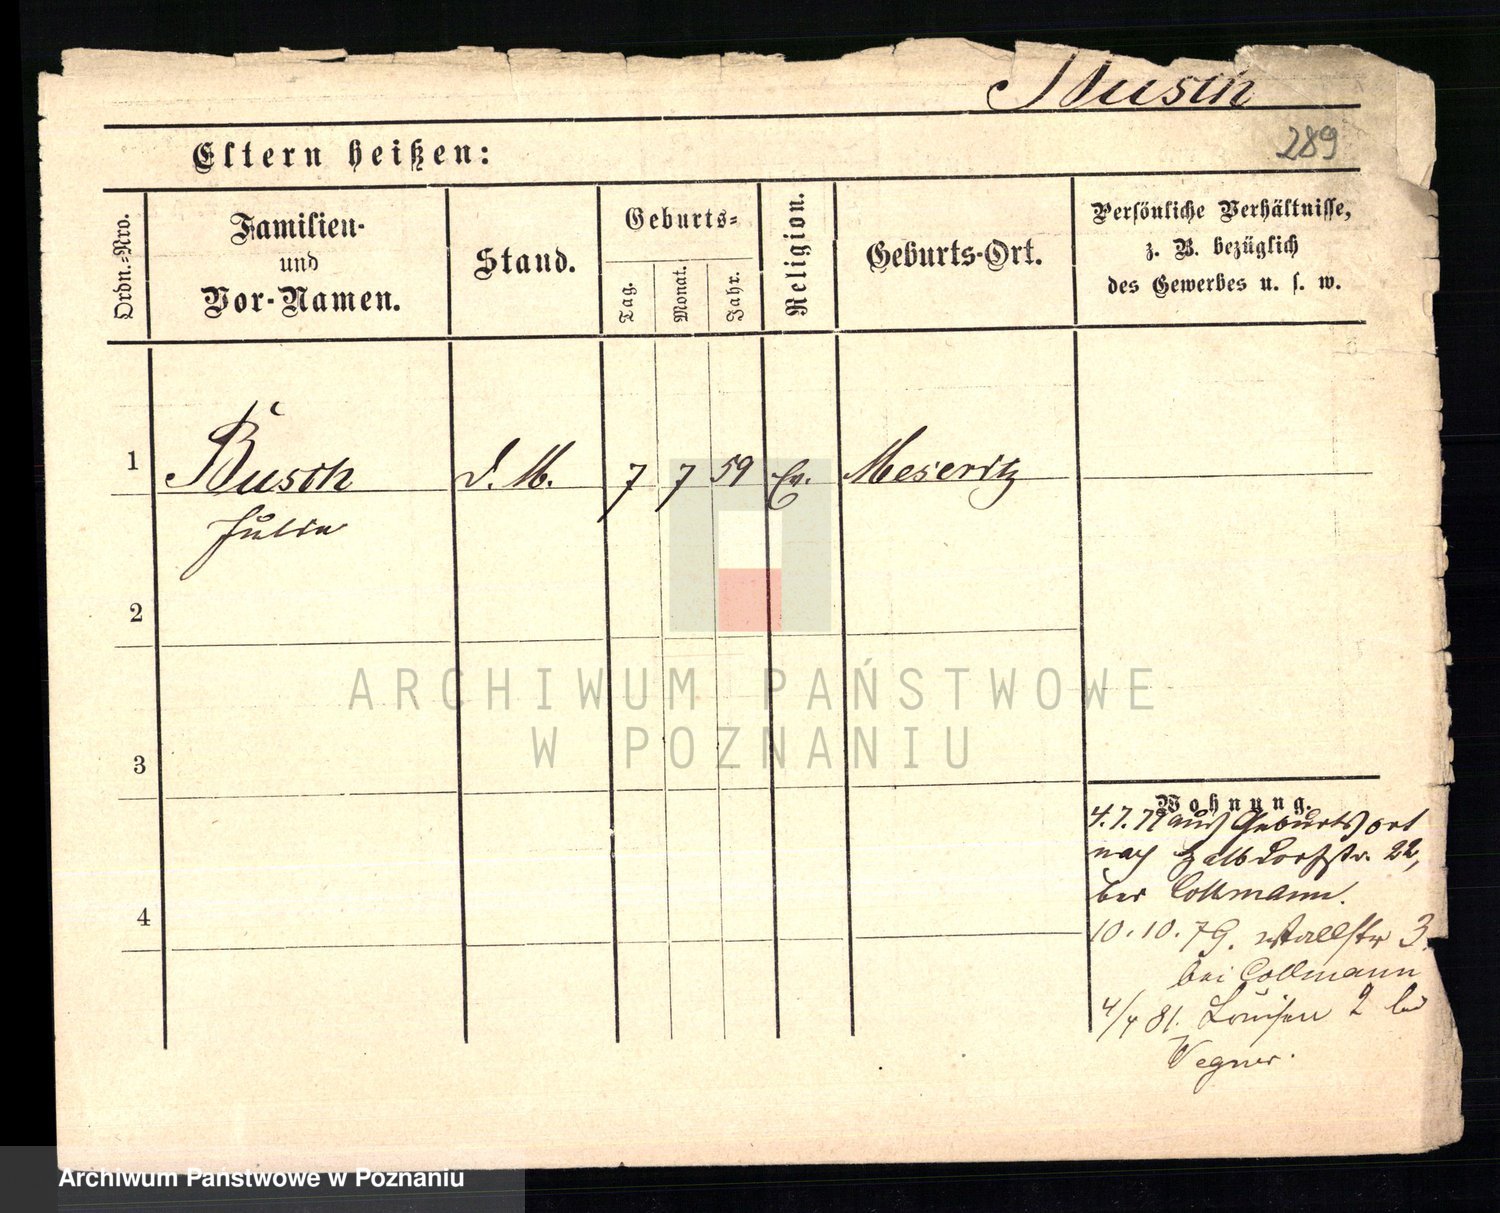 Busch
289
Eltern heißen:
Ordn.-Nro.
Familien-
und
Vor-Namen.
Stand.
Geburts-
Tag.
Monat.
Jahr.
Religion.
Geburts-Ort.
Persönliche Verhältnisse,
z. B. bezüglich
des Gewerbes u. s. w.
1
Busch
D. M.
7
7
59
Ev.
Meseritz
Julie
2
3
4
Wohnung.
4.7.79 aus Geburtsort
nach Halbdorfstr. 22,
bei Collmann.
10.10.79. Wallstr 3.
bei Collmann
4/4 81. Louisen 2 bei
Wegner.
ARCHIWUM PAŃSTWOWE
W POZNANIU
Archiwum Państwowe w Poznaniu